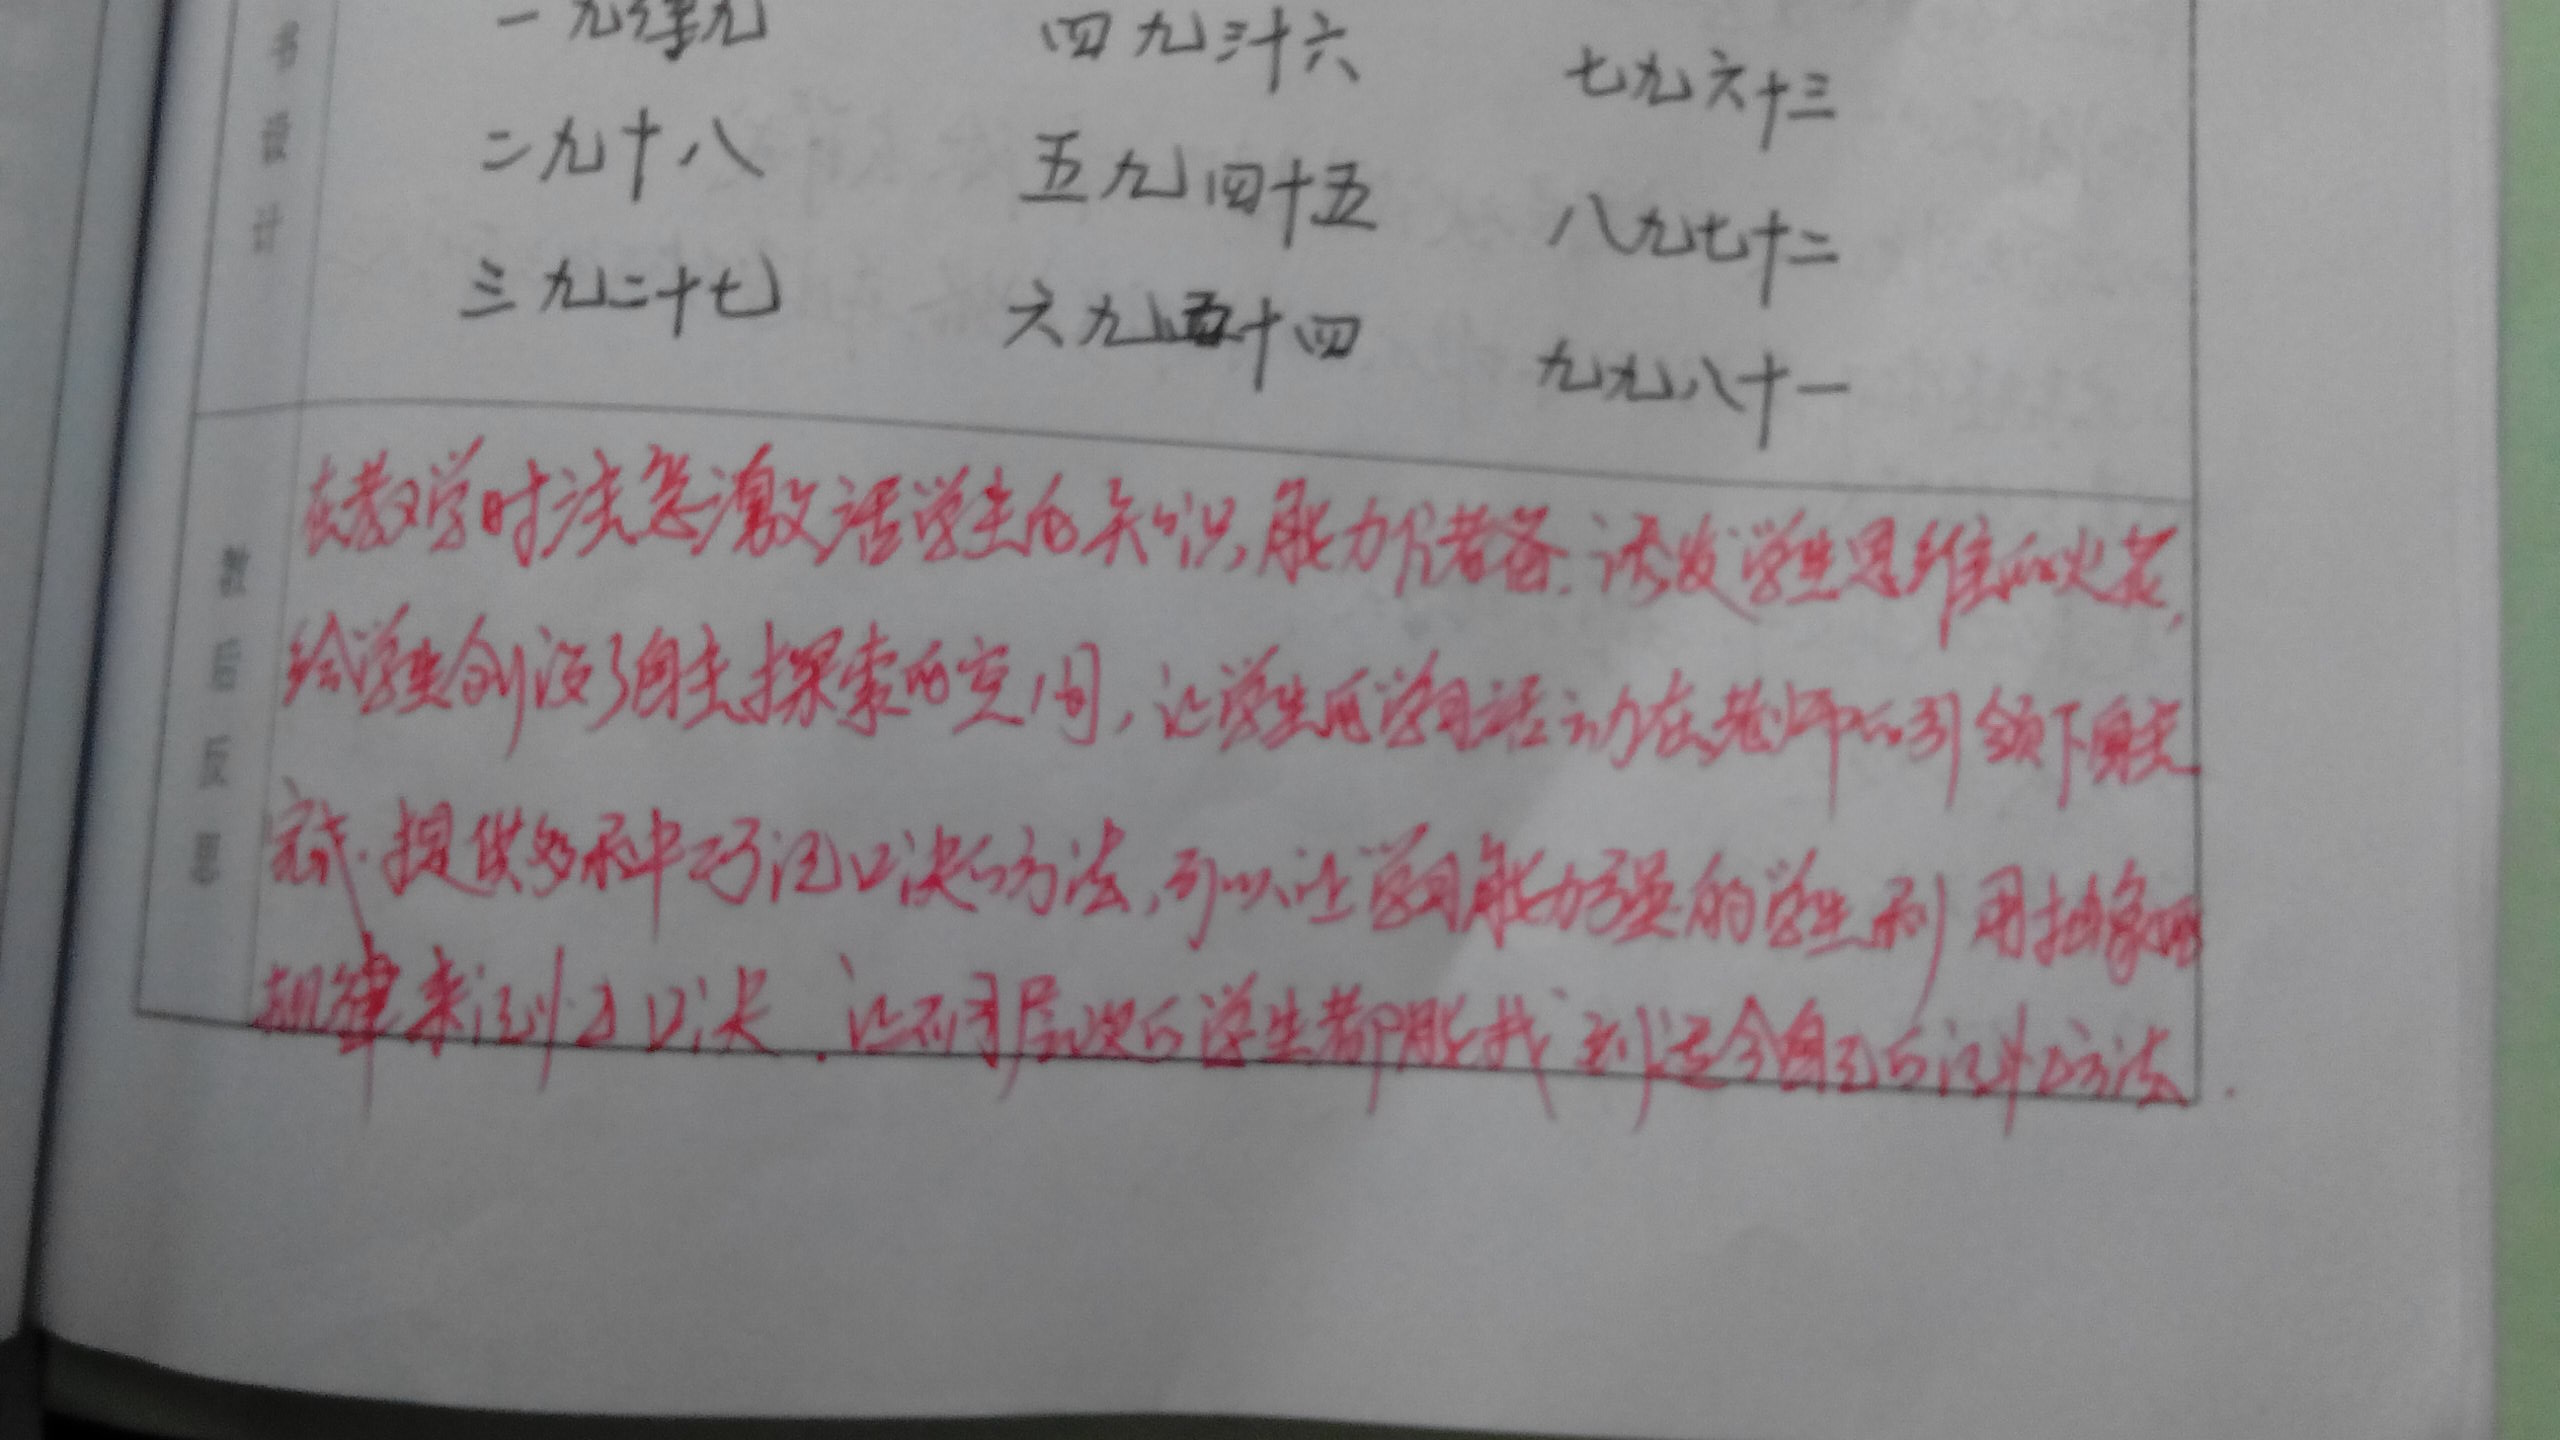 书设计
一九得九 四九三十六 七九六十三
二九十八 五九四十五 八九七十二
三九二十七 六九五十四 九九八十一
教后反思
在教学时注意激活学生的知识,能力储备.诱发学生思维的火花,
给学生创设了自主探索的空间,让学生的学习活动在老师的引领下自主
完成.提供多种巧记口决的方法,可以让学习能力强的学生利用抽象的
规律来记忆口决.让不同层次的学生都能找到适合自己的记忆方法.